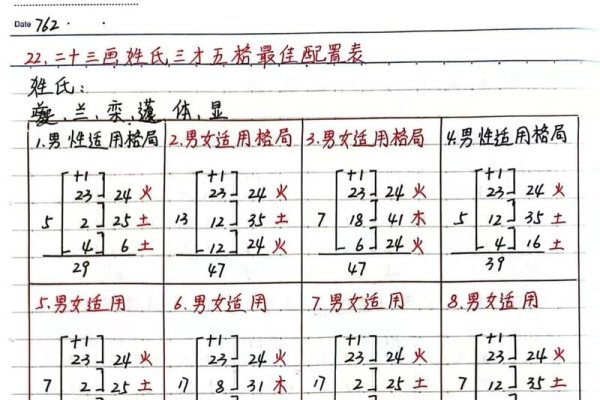 Date 762 . .
22.二十三画姓氏三才五格最佳配置表
姓氏:
兰、栾、体、显
1.男性适用格局 2.男女适用格局 3.男女适用格局 4.男性适用格局
+1 +1 +1 +1
23 24 火 23 24 火 23 24 火 23 24 火
5 2 25 土 13 12 35 土 7 18 41 木 5 12 35 土
4 6 土 12 24 火 6 24 火 4 16 土
29 47 47 39
5.男女适用 6.男女适用 7.男女适用 8.男女适用
+1 +1 +1 +1
23 24 火 23 24 火 23 24 火 23 24 火
7 2 25 土 17 8 31 木 17 2 25 土 7 12 35 土